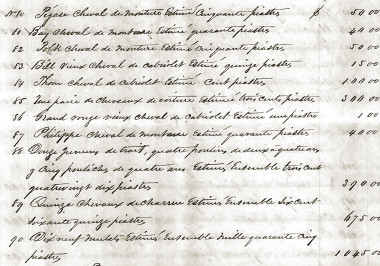 No 80 Pégase Cheval de monture Estimé Cinquante piastres $ 50 00
81 Bay Cheval de monture Estimé quarante piastres 40 00
82 Polk Cheval de monture Estimé Cinquante piastres 50 00
83 Bill vieux Cheval de cabriolet Estimé quinze piastres 15 00
84 Thom Cheval de Cabriolet Estimé Cent piastres 100 00
85 Une paire de Chevaux de voiture Estimés trois cents piastres 300 00
86 Grand rouge vieux cheval de Cabriolet Estimé une piastre 1 00
87 Philippe Cheval de monture Estimé quarante piastres 40 00
88 Douze Jumens de trait, quatre poulins de deux à quatre ans
& Cinq pouliches de quatre ans Estimés Ensemble trois cent
quatre vingt dix piastres 390 00
89 Quinze Chevaux de charrue Estimés Ensemble Six cent
soixante quinze piastres 675 00
90 Dix neuf mulets Estimés Ensemble Mille quarante Cinq
piastres 1045 00